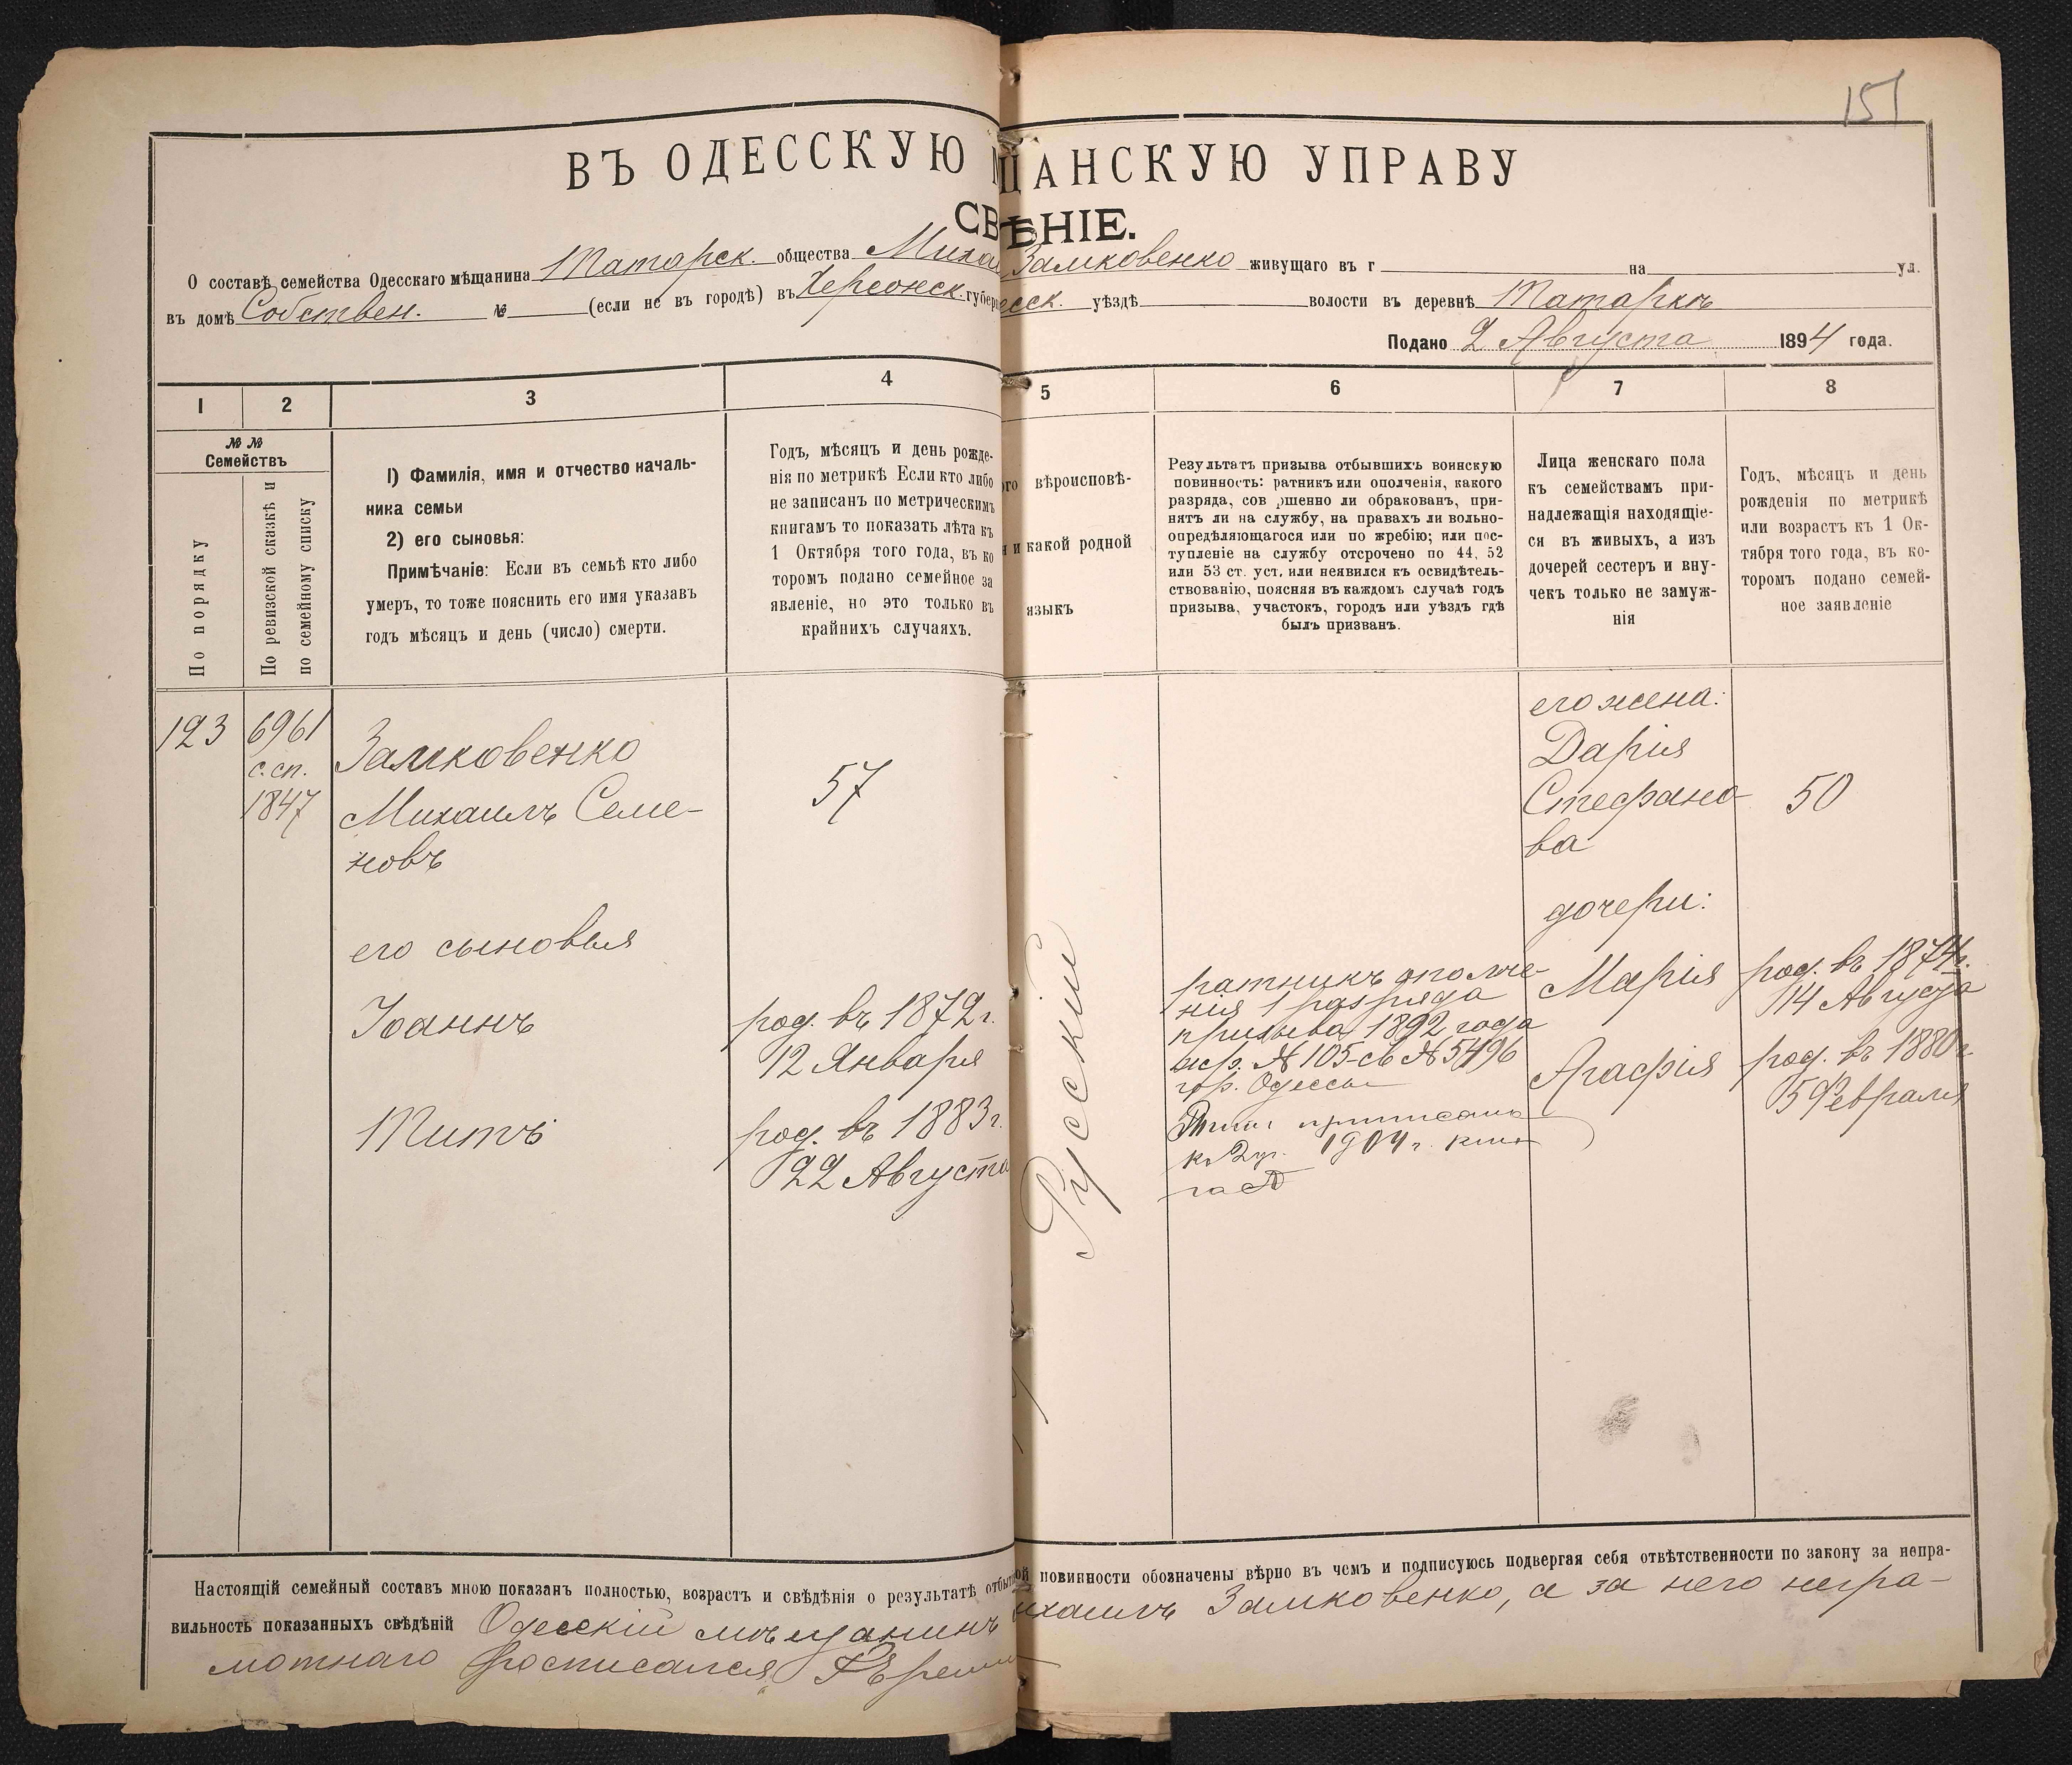 151
ВЪ ОДЕССКУЮ ЩАНСКУЮ УПРАВУ
СВѢНІЕ.
О составѣ семейства Одесскаго мѣщанина Татарск. общества Михаи Замковенко живущаго въ г на ул.
въ домѣ Собствен. № (если не въ городѣ) въ Херсонск. губерн есск. уѣздѣ волости въ деревнѣ Татаркѣ
Подано 2 Августа 1894 года.
1 2 3 4 5 6 7 8
№ №
Семействъ
По порядку
По ревизской сказкѣ и
по семейному списку
1) Фамилія, имя и отчество началь-
ника семьи
2) его сыновья:
Примѣчаніе: Если въ семьѣ кто либо
умеръ, то тоже пояснить его имя указавъ
годъ мѣсяцъ и день (число) смерти.
Годъ, мѣсяцъ и день рожде-
нія по метрикѣ Если кто либо
не записанъ по метрическимъ
книгамъ то показать лѣта къ
1 Октября того года, въ ко
торомъ подано семейное за
явленіе, но это только въ
крайнихъ случаяхъ.
ого вѣроисповѣ-
и какой родной
языкъ
Результатъ призыва отбывшихъ воинскую
повинность: ратникъ или ополченія, какого
разряда, сов ршенно ли обракованъ, при-
нятъ ли на службу, на правахъ ли вольно-
опредѣляющагося или по жребію; или пос-
тупленіе на службу отсрочено по 44, 52
или 53 ст. уст. или неявился къ освидѣтель-
ствованію, поясняя въ каждомъ случаѣ годъ
призыва, участокъ, городъ или уѣздъ гдѣ
былъ призванъ.
Лица женскаго пола
къ семействамъ при-
надлежащія находящіе-
ся въ живыхъ, а изъ
дочерей сестеръ и вну-
чекъ только не замуж-
нія
Годъ, мѣсяцъ и день
рожденія по метрикѣ
или возрастъ къ 1 Ок-
тября того года, въ ко-
торомъ подано семей-
ное заявленіе
123
6961
с. сп.
1847
Замковенко
Михаилъ Семе-
новъ
его сыновья
Іоаннъ
Титъ
57
род. въ 1872 г.
12 Января
род. въ 1883 г.
22 Августа
Русскій
ратникъ ополче-
нія 1 разряда
призыва 1892 года
жер. № 105 - св № 5496
гор. Одессы
Титъ приписанъ
1904 г.
его жена:
Дарія
Стефано-
ва
дочери:
Марія
Агафія
50
род. въ 1874 г.
14 Августа
род. въ 1880 г.
5 Февраля
Настоящій семейный составъ мною показанъ полностью, возрастъ и свѣдѣнія о результатѣ отбыт ой повинности обозначены вѣрно въ чемъ и подписуюсь подвергая себя отвѣтственности по закону за непра-
вильность показанныхъ свѣдѣній Одесскій мѣщанинъ ихаилъ Замковенко, а за него негра-
мотнаго росписался